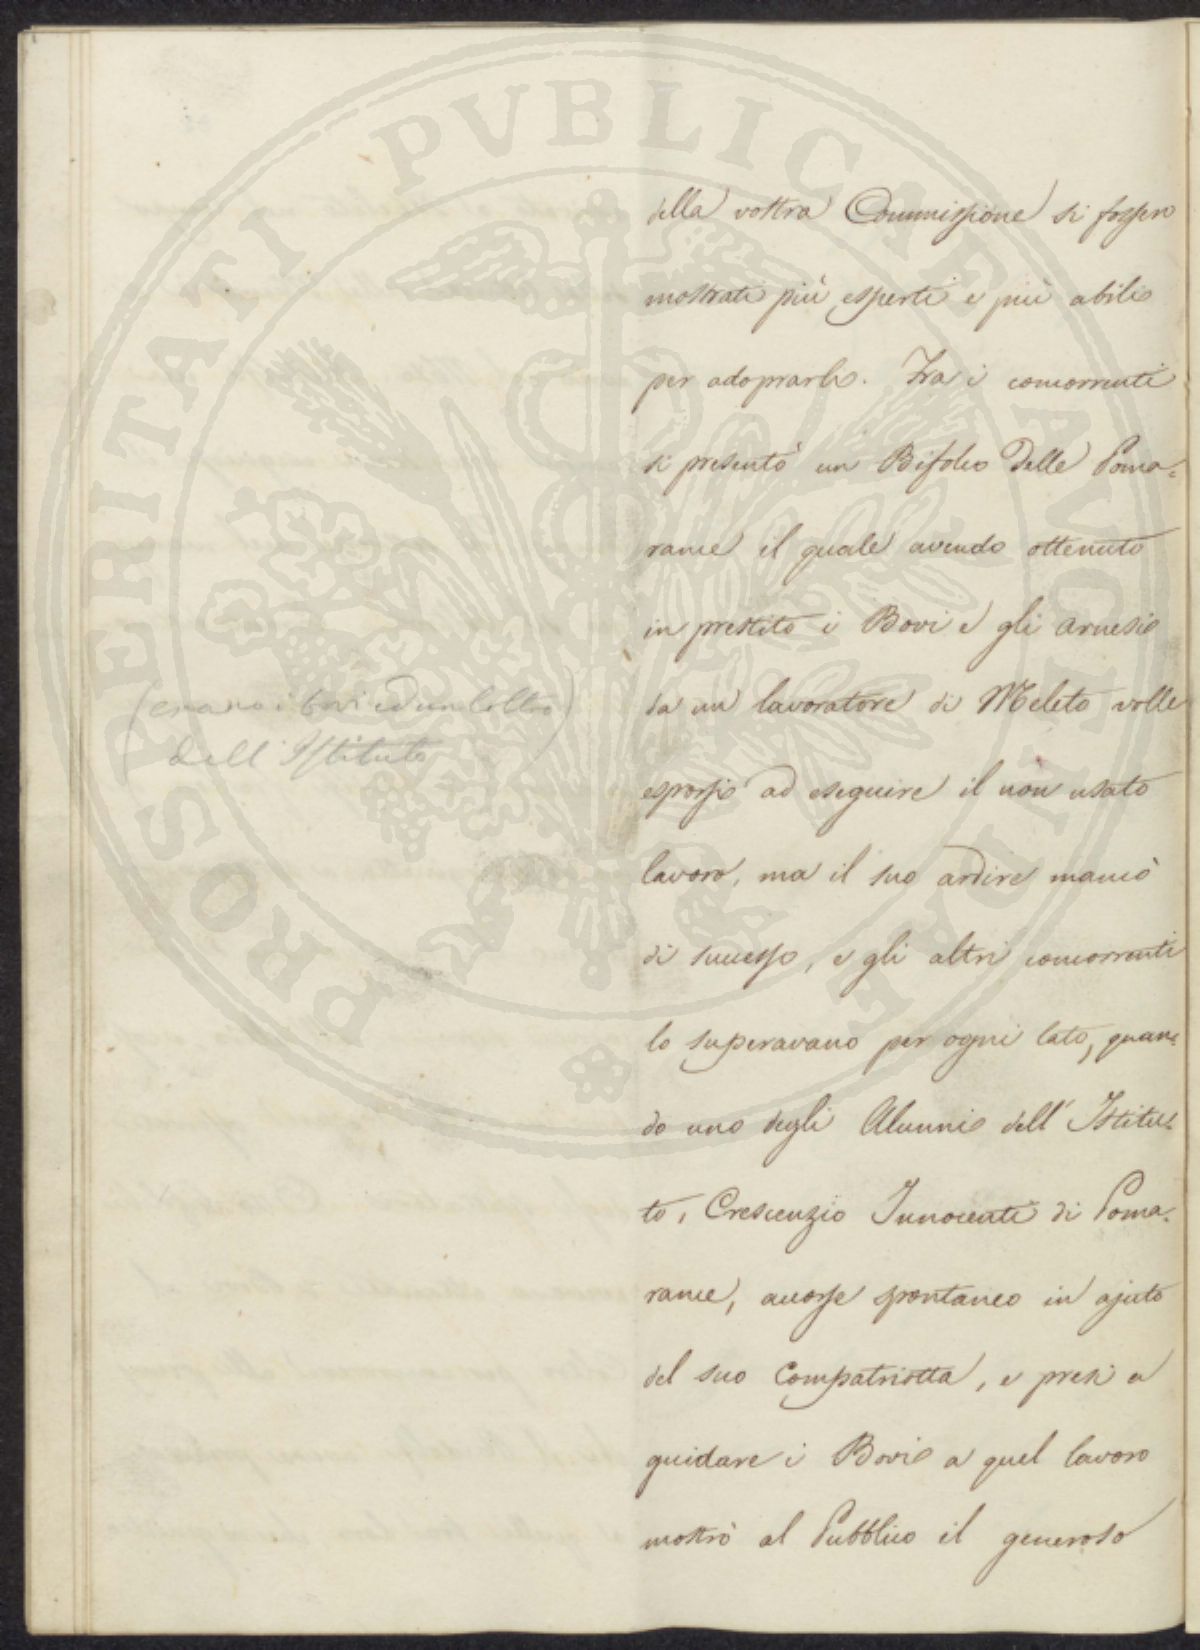 della vostra Commissione si fossero
mostrati più esperti e più abili
per adoprarli. Fra i concorrenti
si presentò un Bifolco delle Poma=
rance il quale avendo ottenuto
in prestito i Bovi e gli arnesi
da un lavoratore di Meleto volle
esporsi ad eseguire il non usato
lavoro, ma il suo ardire mancò
di successo, e gli altri concorrenti
lo superavano per ogni lato, quan=
do uno degli Alunni dell' Istitu=
to, Crescenzio Innocenti di Poma=
rance, accorse spontaneo in ajuto
del suo Compatriotta, e presi a
guidare i Bovi a quel lavoro
mostrò al Pubblico il generoso
(erano i bovi ed un coltro
dell' Istituto)
PROSPERITATI PVBLICAE AVGENDAE